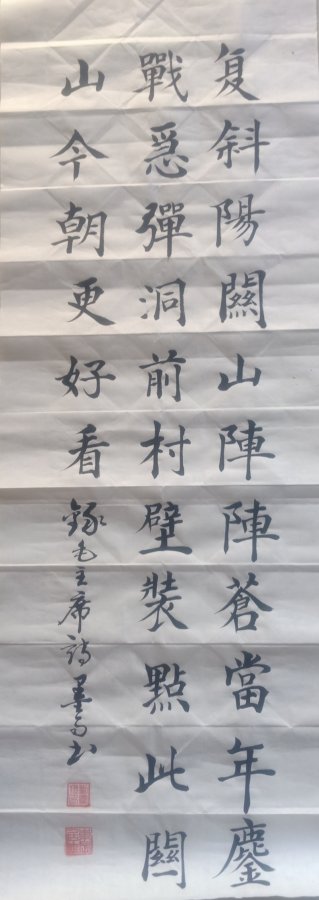 复斜陽關山陣陣蒼當年鏖
戰急彈洞前村壁裝點此關
山今朝更好看
錄毛主席詩墨书